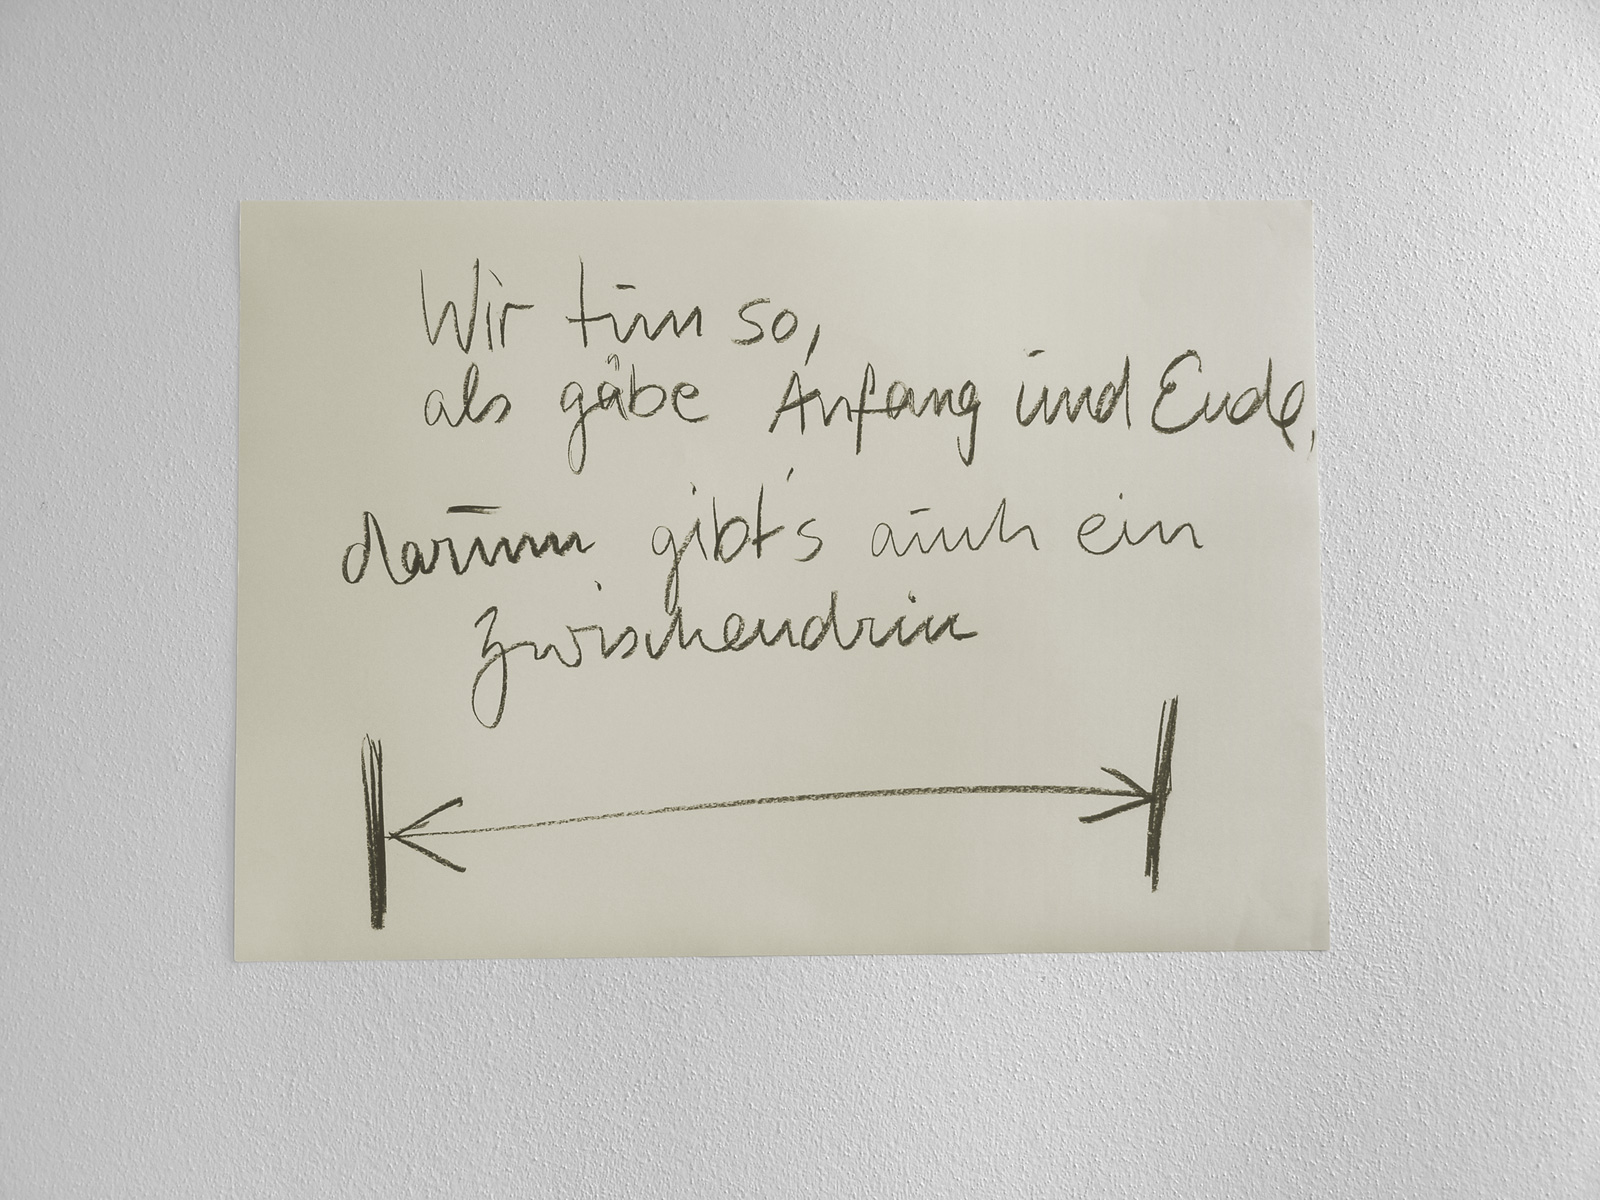 Wir tun so,
als gäbe Anfang und Ende,
darum gibt's auch ein
Zwischendrin